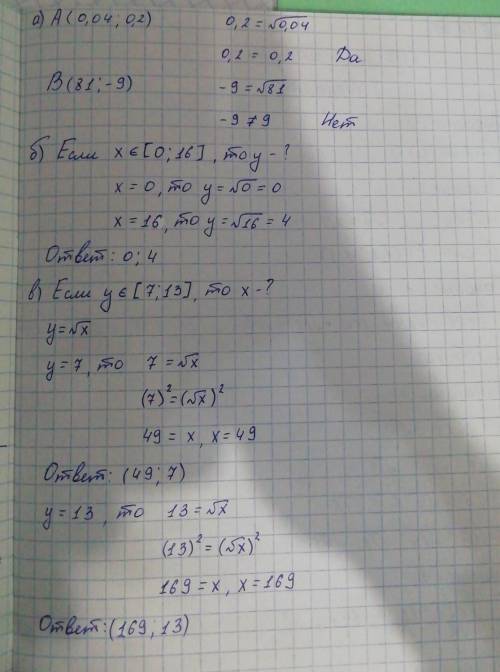 а) А (0,04; 0,2) 0,2 = √0,04
0,2 = 0,2 Да
В (81; -9) -9 = √81
-9 ≠ 9 Нет
б) Если x ∈ [0; 16], то y - ?
x = 0, то y = √0 = 0
x = 16, то y = √16 = 4
Ответ: 0; 4
в) Если y ∈ [7; 13], то x - ?
y = √x
y = 7, то 7 = √x
(7)² = (√x)²
49 = x, x = 49
Ответ: (49; 7)
y = 13, то 13 = √x
(13)² = (√x)²
169 = x, x = 169
Ответ: (169; 13)